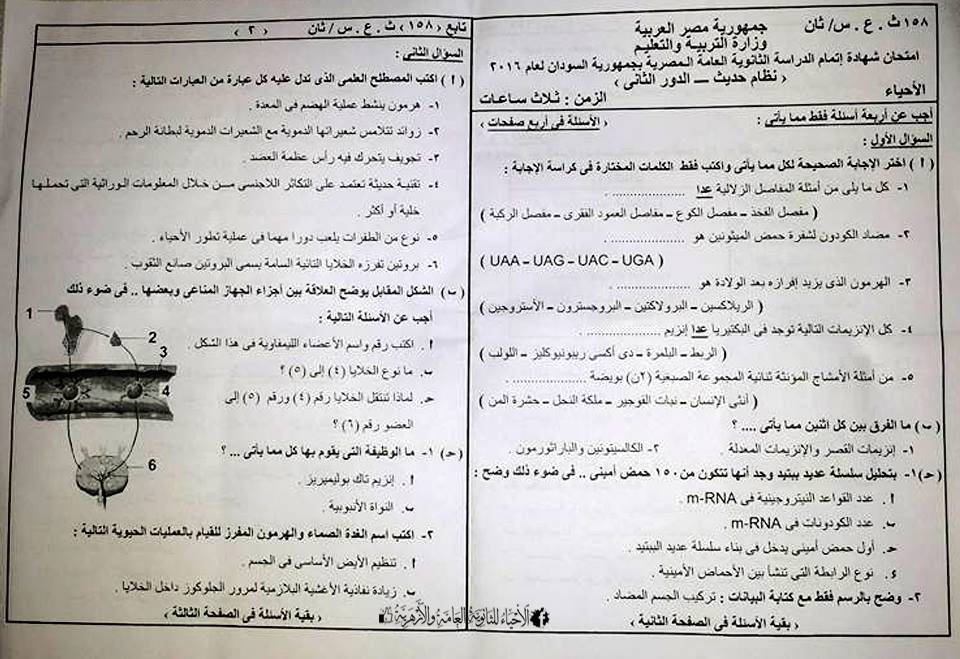 ١٥٨ ث . ع . س/ ثان
جمهورية مصر العربية
وزارة التربية والتعليم
امتحان شهادة إتمام الدراسة الثانوية العامة المصرية بجمهورية السودان لعام ٢٠١٦
‹ نظام حديث ـــ الدور الثانى ›
الأحياء
الزمن : ثلاث ساعات
أجب عن أربعة أسئلة فقط مما يأتى :
‹ الأسئلة فى أربع صفحات ›
السؤال الأول :
( أ ) اختر الإجابة الصحيحة لكل مما يأتى واكتب فقط الكلمات المختارة فى كراسة الإجابة :
١- كل ما يلى من أمثلة المفاصل الزلالية عدا ..................
( مفصل الفخذ ـ مفصل الكوع ـ مفاصل العمود الفقرى ـ مفصل الركبة )
٢- مضاد الكودون لشفرة حمض الميثونين هو ..................
( UAA – UAG – UAC – UGA )
٣- الهرمون الذى يزيد إفرازه بعد الولادة هو ..................
( الريلاكسين ـ البرولاكتين ـ البروجسترون ـ الأستروجين )
٤- كل الإنزيمات التالية توجد فى البكتيريا عدا إنزيم ..................
( الربط ـ البلمرة ـ دى أكسى ريبونيوكليز ـ اللولب )
٥- من أمثلة الأمشاج المؤنثة ثنائية المجموعة الصبغية (٢ن) بويضة ..................
( أنثى الإنسان ـ نبات الفوجير ـ ملكة النحل ـ حشرة المن )
( ب ) ما الفرق بين كل اثنين مما يأتى .... ؟
١- إنزيمات القصر والإنزيمات المعدلة .
٢- الكالسيتونين والباراثورمون .
( حـ )١- بتحليل سلسلة عديد ببتيد وجد أنها تتكون من ١٥٠ حمض أمينى .. فى ضوء ذلك وضح :
أ . عدد القواعد النيتروجينية فى m-RNA .
ب . عدد الكودونات فى m-RNA .
حـ . أول حمض أمينى يدخل فى بناء سلسلة عديد الببتيد .
د . نوع الرابطة التى تنشأ بين الأحماض الأمينية .
٢- وضح بالرسم فقط مع كتابة البيانات : تركيب الجسم المضاد .
‹ بقية الأسئلة فى الصفحة الثانية ›
تابع ‹ ١٥٨ › ث . ع . س/ ثان
‹ ٢ ›
السؤال الثانى :
( أ ) اكتب المصطلح العلمى الذى تدل عليه كل عبارة من العبارات التالية :
١- هرمون ينشط عملية الهضم فى المعدة .
٢- زوائد تتلامس شعيراتها الدموية مع الشعيرات الدموية لبطانة الرحم .
٣- تجويف يتحرك فيه رأس عظمة العضد .
٤- تقنية حديثة تعتمد على التكاثر اللاجنسى مـن خـلال المعلومات الـوراثية التى تحملـهـا
خلية أو أكثر .
٥- نوع من الطفرات يلعب دورا مهما فى عملية تطور الأحياء .
٦- بروتين تفرزه الخلايا التائية السامة يسمى البروتين صانع الثقوب .
( ب ) الشكل المقابل يوضح العلاقة بين أجزاء الجهاز المناعى وبعضها .. فى ضوء ذلك
أجب عن الأسئلة التالية :
أ . اكتب رقم واسم الأعضاء الليمفاوية فى هذا الشكل .
ب . ما نوع الخلايا (٤) إلى (٥) ؟
حـ . لماذا تنتقل الخلايا رقم (٤) ورقم (٥) إلى
العضو رقم (٦) ؟
1
2
3
4
5
6
( حـ ) ١- ما الوظيفة التى يقوم بها كل مما يأتى ... ؟
أ . إنزيم تاك بوليميريز .
ب . النواة الأنبوبية .
٢- اكتب اسم الغدة الصماء والهرمون المفرز للقيام بالعمليات الحيوية التالية :
أ . تنظيم الأيض الأساسى فى الجسم .
ب . زيادة نفاذية الأغشية البلازمية لمرور الجلوكوز داخل الخلايا .
‹ بقية الأسئلة فى الصفحة الثالثة ›
الأحياء للثانوية العامة والأزهرية